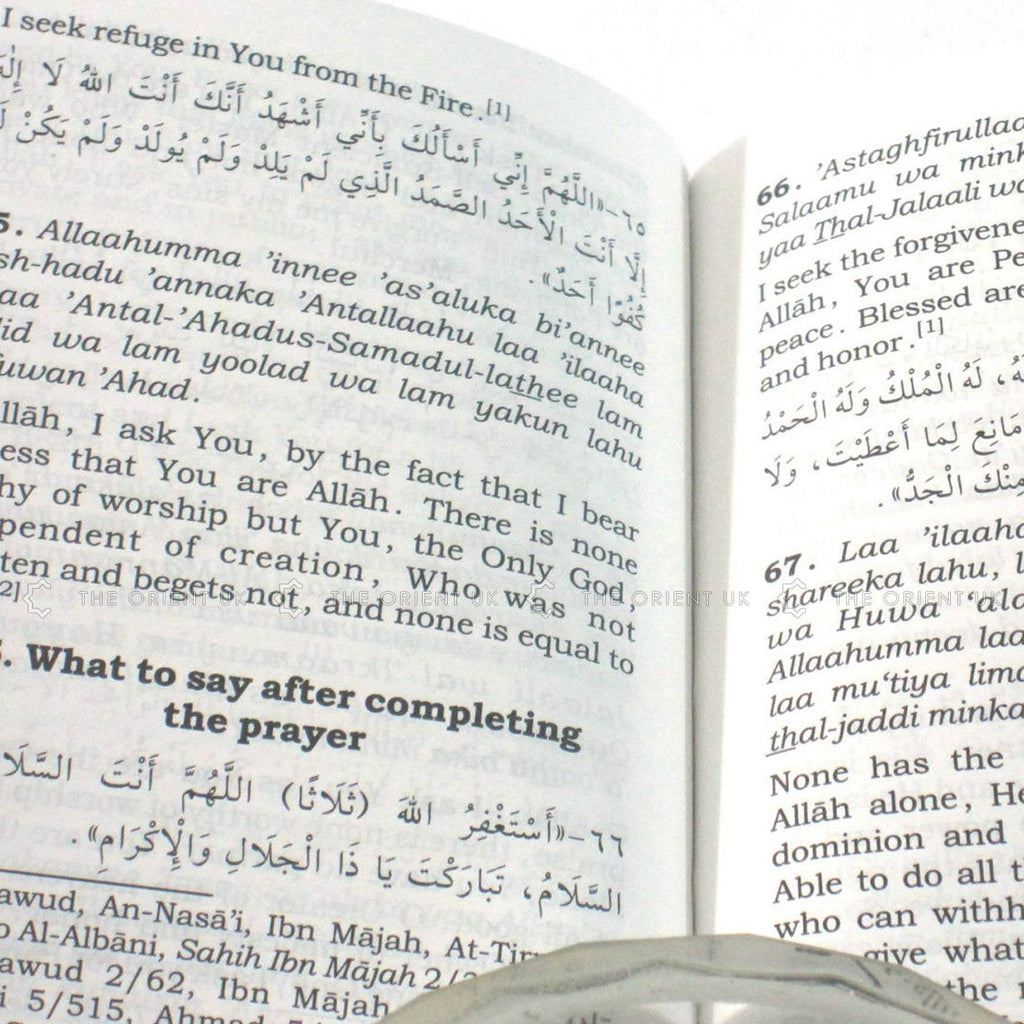 I seek refuge in You from the Fire.[1]
٦٥-«اللَّهُمَّ إِنِّي أَسْأَلُكَ بِأَنِّي أَشْهَدُ أَنَّكَ أَنْتَ اللهُ لَا إِلَهَ
إِلَّا أَنْتَ الْأَحَدُ الصَّمَدُ الَّذِي لَمْ يَلِدْ وَلَمْ يُولَدْ وَلَمْ يَكُنْ
كُفُوًا أَحَدٌ».
5. Allaahumma ’innee ’as’aluka bi’annee
sh-hadu ’annaka ’Antallaahu laa ’ilaaha
aa ’Antal-’Ahadus-Samadul-lathee lam
lid wa lam yoolad wa lam yakun lahu
uwan ’Ahad.
llāh, I ask You, by the fact that I bear
ess that You are Allāh. There is none
hy of worship but You, the Only God,
pendent of creation, Who was not
ten and begets not, and none is equal to
2]
. What to say after completing
the prayer
٦٦-«أَسْتَغْفِرُ اللهَ (ثَلَاثًا) اللَّهُمَّ أَنْتَ السَّلَا
السَّلَامُ، تَبَارَكْتَ يَا ذَا الْجَلَالِ وَالْإِكْرَامِ».
awud, An-Nasā’i, Ibn Mājah, At-Tir
o Al-Albāni, Sahih Ibn Mājah 2/
awud 2/62, Ibn Mājah
i 5/515, Ahmad
66. ’Astaghfirullaa
Salaamu wa mink
yaa Thal-Jalaali wa
I seek the forgivene
Allāh, You are Pe
peace. Blessed are
and honor.[1]
لَهُ الْمُلْكُ وَلَهُ الْحَمْدُ
مَانِعَ لِمَا أَعْطَيْتَ، وَلَا
مِنْكَ الْجَدُّ».
67. Laa ’ilaaha
shareeka lahu, l
wa Huwa ‘ala
Allaahumma laa
laa mu‘tiya lima
thal-jaddi minka
None has the
Allāh alone, He
dominion and
Able to do all t
who can withh
give what
the
THE ORIENT UK THE ORIENT UK THE ORIENT UK THE ORIENT UK